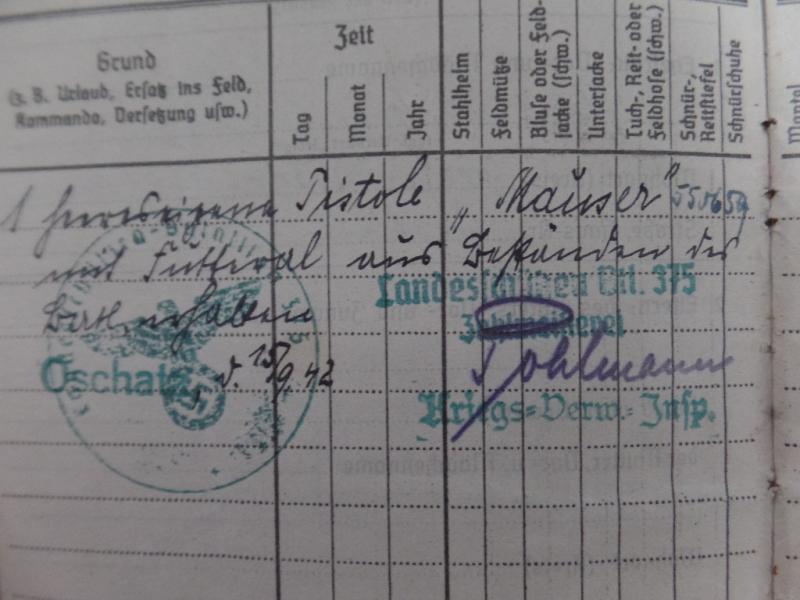 Grund
(z. B. Urlaub, Ersatz ins Feld,
Kommando, Versetzung usw.)
Zeit
Tag
Monat
Jahr
Stahlhelm
Feldmütze
Bluse oder Feld-
jacke (schw.)
Unterjacke
Tuch-, Reit- oder
Feldhose (schw.)
Schnür-,
Reitstiefel
Schnürschuhe
Mantel
1 heereseigene Pistole „Mauser"
mit Futteral aus Beständen des
Batl. erhalten
Oschatz, d. 15/9.42
Landesschützen Btl. 375
Zahlmeisterei
Pohlmann
Kriegs=Verw.=Insp.